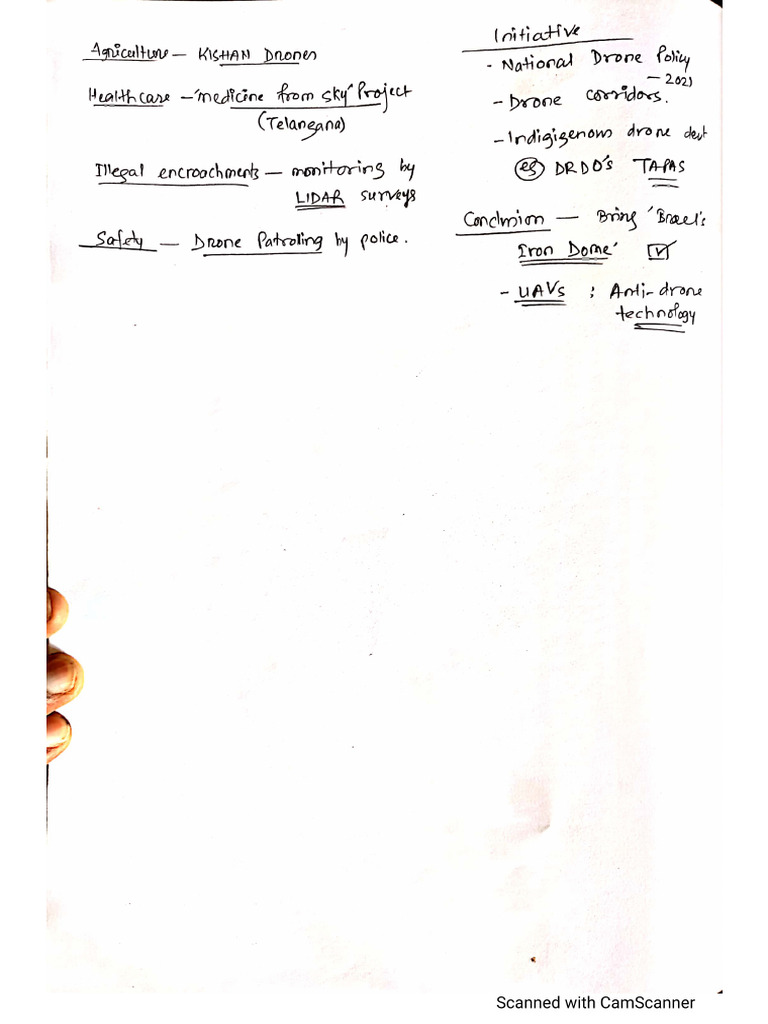 Agriculture — KISHAN Drones
Healthcare — 'medicine from sky' Project
(Telangana)
Illegal encroachments — monitoring by
LIDAR surveys
Safety — Drone Patroling by police.
Initiative
- National Drone Policy
— 2021
- Drone corridors.
- Indigigenous drone devt
(eg) DRDO's TAPAS
Conclusion — Bring 'Israel's
Iron Dome'
- UAVs : Anti-drone
technology
Scanned with CamScanner